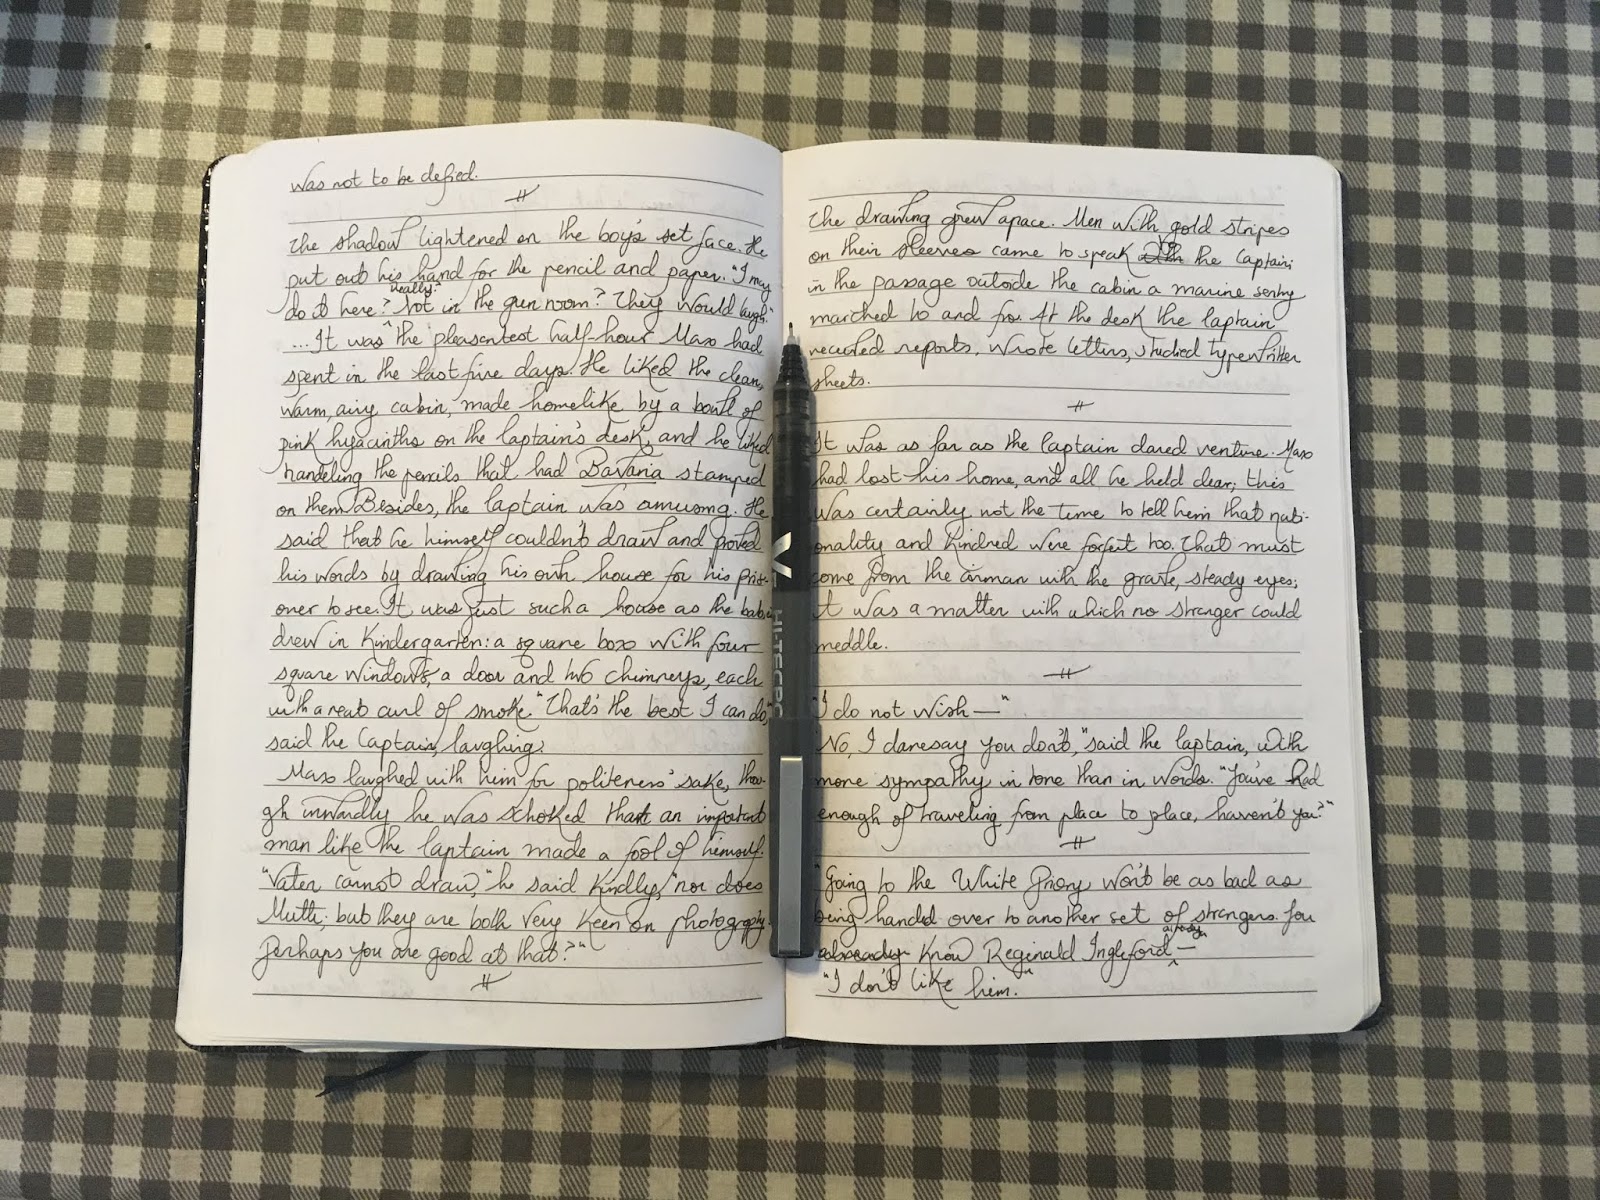 was not to be defied.
#
The shadow lightened on the boy's set face. He
put out his hand for the pencil and paper. "I may
do it here? Not in the gun room? They would laugh."
really?
...It was the pleasantest half-hour Max had
spent in the last five days. He liked the clean,
warm, airy cabin, made homelike by a bowl of
pink hyacinths on the Captain's desk, and he liked
handeling the pencils that had Bavaria stamped
on them. Besides, the Captain was amusing. He
said that he himself couldn't draw and proved
his words by drawing his own house for his pris-
oner to see. It was just such a house as the babies
drew in Kindergarten: a square box with four
square windows, a door and two chimneys, each
with a neat curl of smoke. "That's the best I can do,"
said the Captain, laughing.
Max laughed with him for politeness' sake, thou-
gh inwardly he was shoked that an important
man like the Captain made a fool of himself.
"Vater cannot draw," he said kindly, "nor does
Mutti; but they are both very keen on photography.
Perhaps you are good at that?"
#
The drawing grew apace. Men with gold stripes
on their sleeves came to speak to the Captain;
in the passage outside the cabin a marine sentry
marched to and fro. At the desk the Captain
received reports, wrote letters, studied typewritten
sheets.
#
It was as far as the Captain dared venture. Max
had lost his home, and all he held dear; this
was certainly not the time to tell him that nati-
onality and kindred were forfeit too. That must
come from the airman with the grave, steady eyes;
it was a matter with which no stranger could
meddle.
#
"I do not wish—"
"No, I daresay you don't," said the Captain, with
more sympathy in tone than in words. "You've had
enough of traveling from place to place, haven't you?"
#
"Going to the White Priory won't be as bad as
being handed over to another set of strangers. You
already know Reginald Ingleford —
already
"I don't like him."
V
HI-TECPOINT